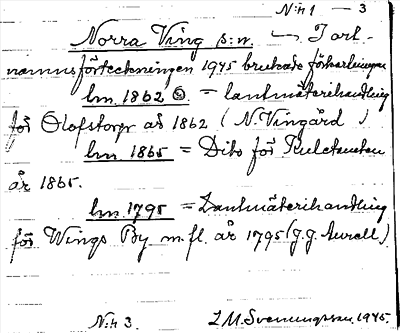 N:h 1 — 3
Norra Ving s:n. — I ort-
namnsförteckningen 1945 brukade förkortningar
lm. 1862 = lantmäterihandling
för Olofstorp år 1862 (N. Vingård)
lm. 1865 = Dito för
år 1865.
lm. 1795 = Lantmäterihandling
för Wings By m.fl. år 1795 (J.G. Aurell)
N:h 3. L.M. Svenungsson 1945.